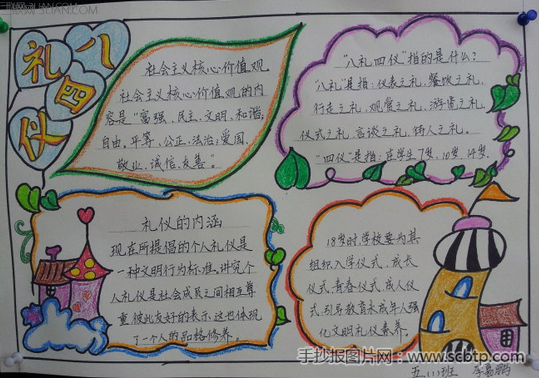 八礼四仪
社会主义核心价值观
社会主义核心价值观的内
容是“富强、民主、文明、和谐、
自由、平等、公正、法治、爱国、
敬业、诚信、友善”。
“八礼四仪”指的是什么?
“八礼”是指:仪表之礼、餐饮之礼、
行走之礼、观赏之礼、游览之礼、
仪式之礼、言谈之礼、待人之礼。
“四仪”是指:在学生7岁、10岁、14岁、
礼仪的内涵
现在所提倡的个人礼仪是
一种文明行为标准。讲究个
人礼仪是社会成员之间相互尊
重、彼此友好的表示,这也体现
了一个人的品格修养。
18岁时,学校要为其
组织入学仪式、成长
仪式、青春仪式、成人仪
式,引导教育未成年人强
化文明礼仪素养。
手抄报图片网:www.scbtp.com
五(1)班